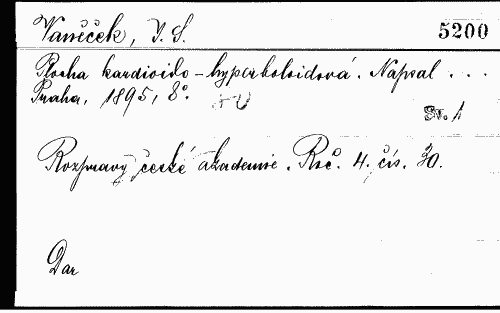 Vaněček, J. S. 5200
Plocha kardioido-hyperboloidová. Napsal . . .
Praha, 1895, 8°.
Sv. 1
Rozpravy české akademie. Roč. 4. čís. 30.
Dar